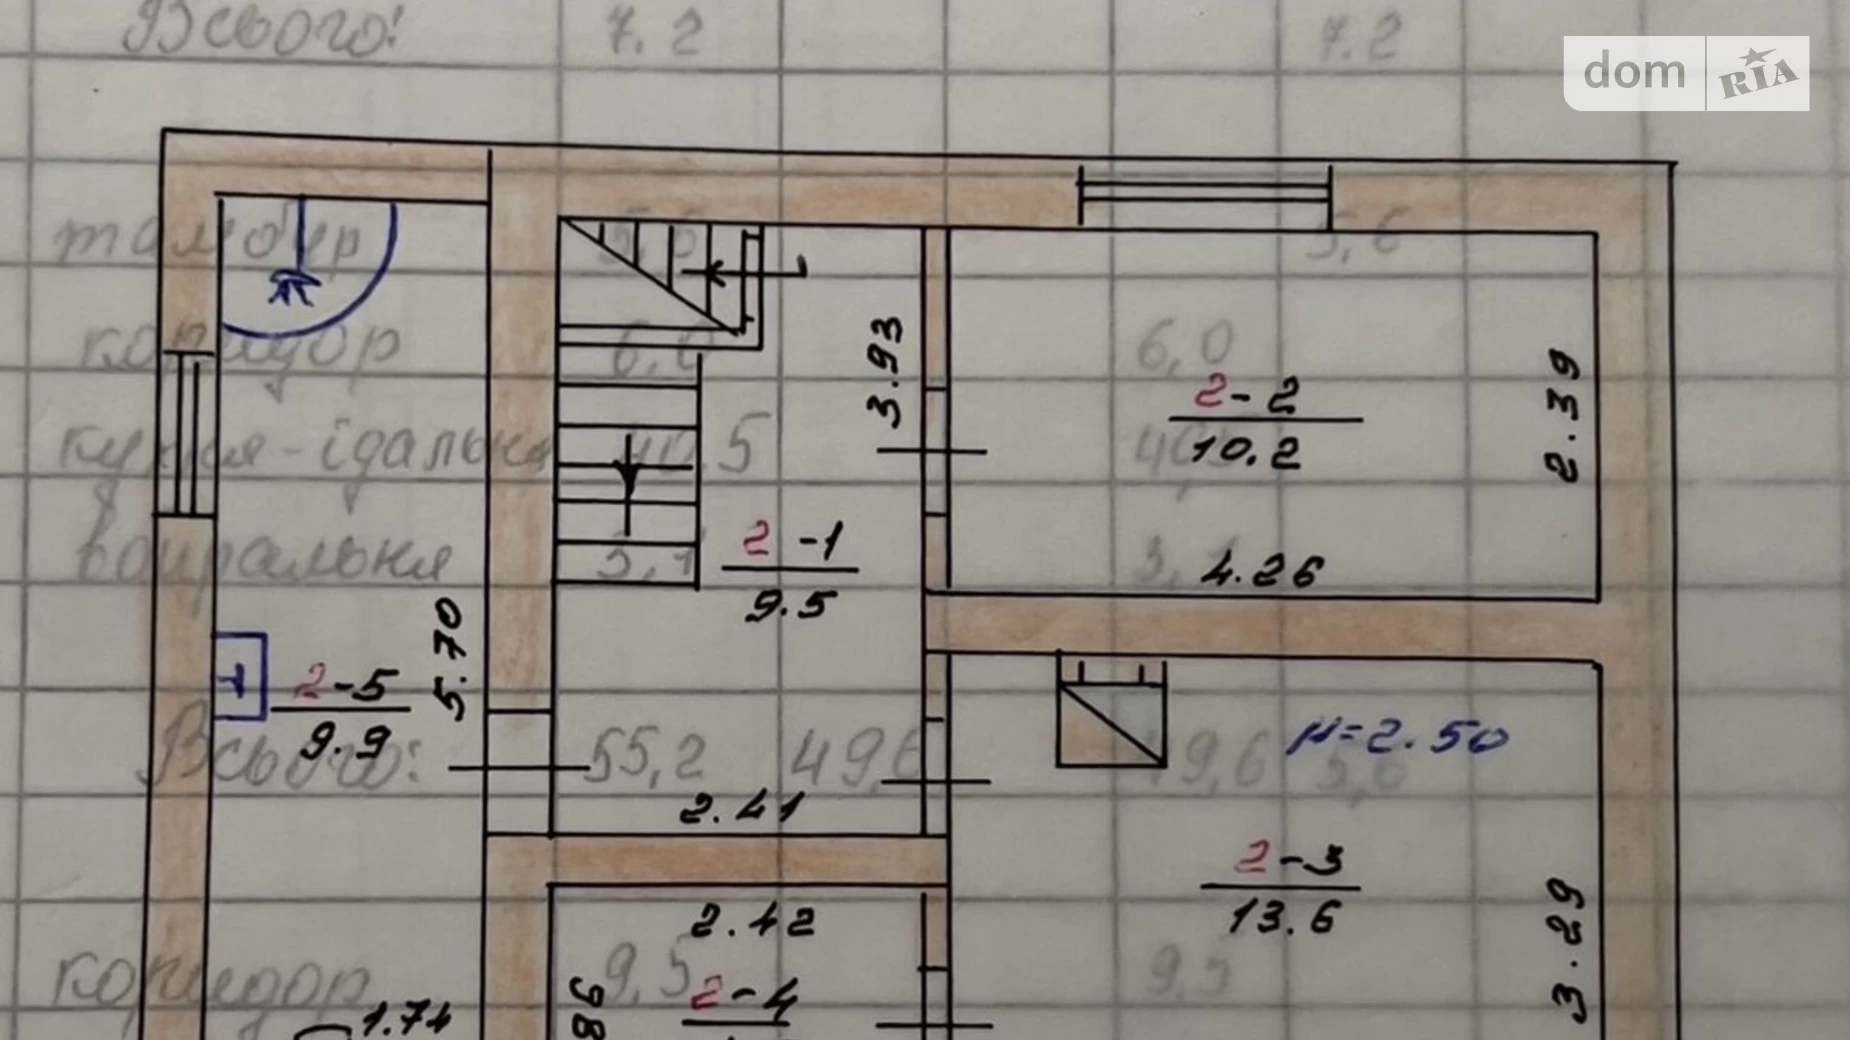 Всього! 7.2 7.2
dom RIA
тамбур 5,6 5,6
коридор 6,0 6,0
3.93
2-2
10.2
2.39
кухня-їдальня 40,5 40,5
2-1
9.5
вбиральня 3,1 3,1
4.26
5.70
2-5
9.9
н=2.50
Всього: 55,2 49,6 49,6 5,6
2.41
2-3
13.6
2.42
3.29
коридор 9,5 9,5
2-4
1.74